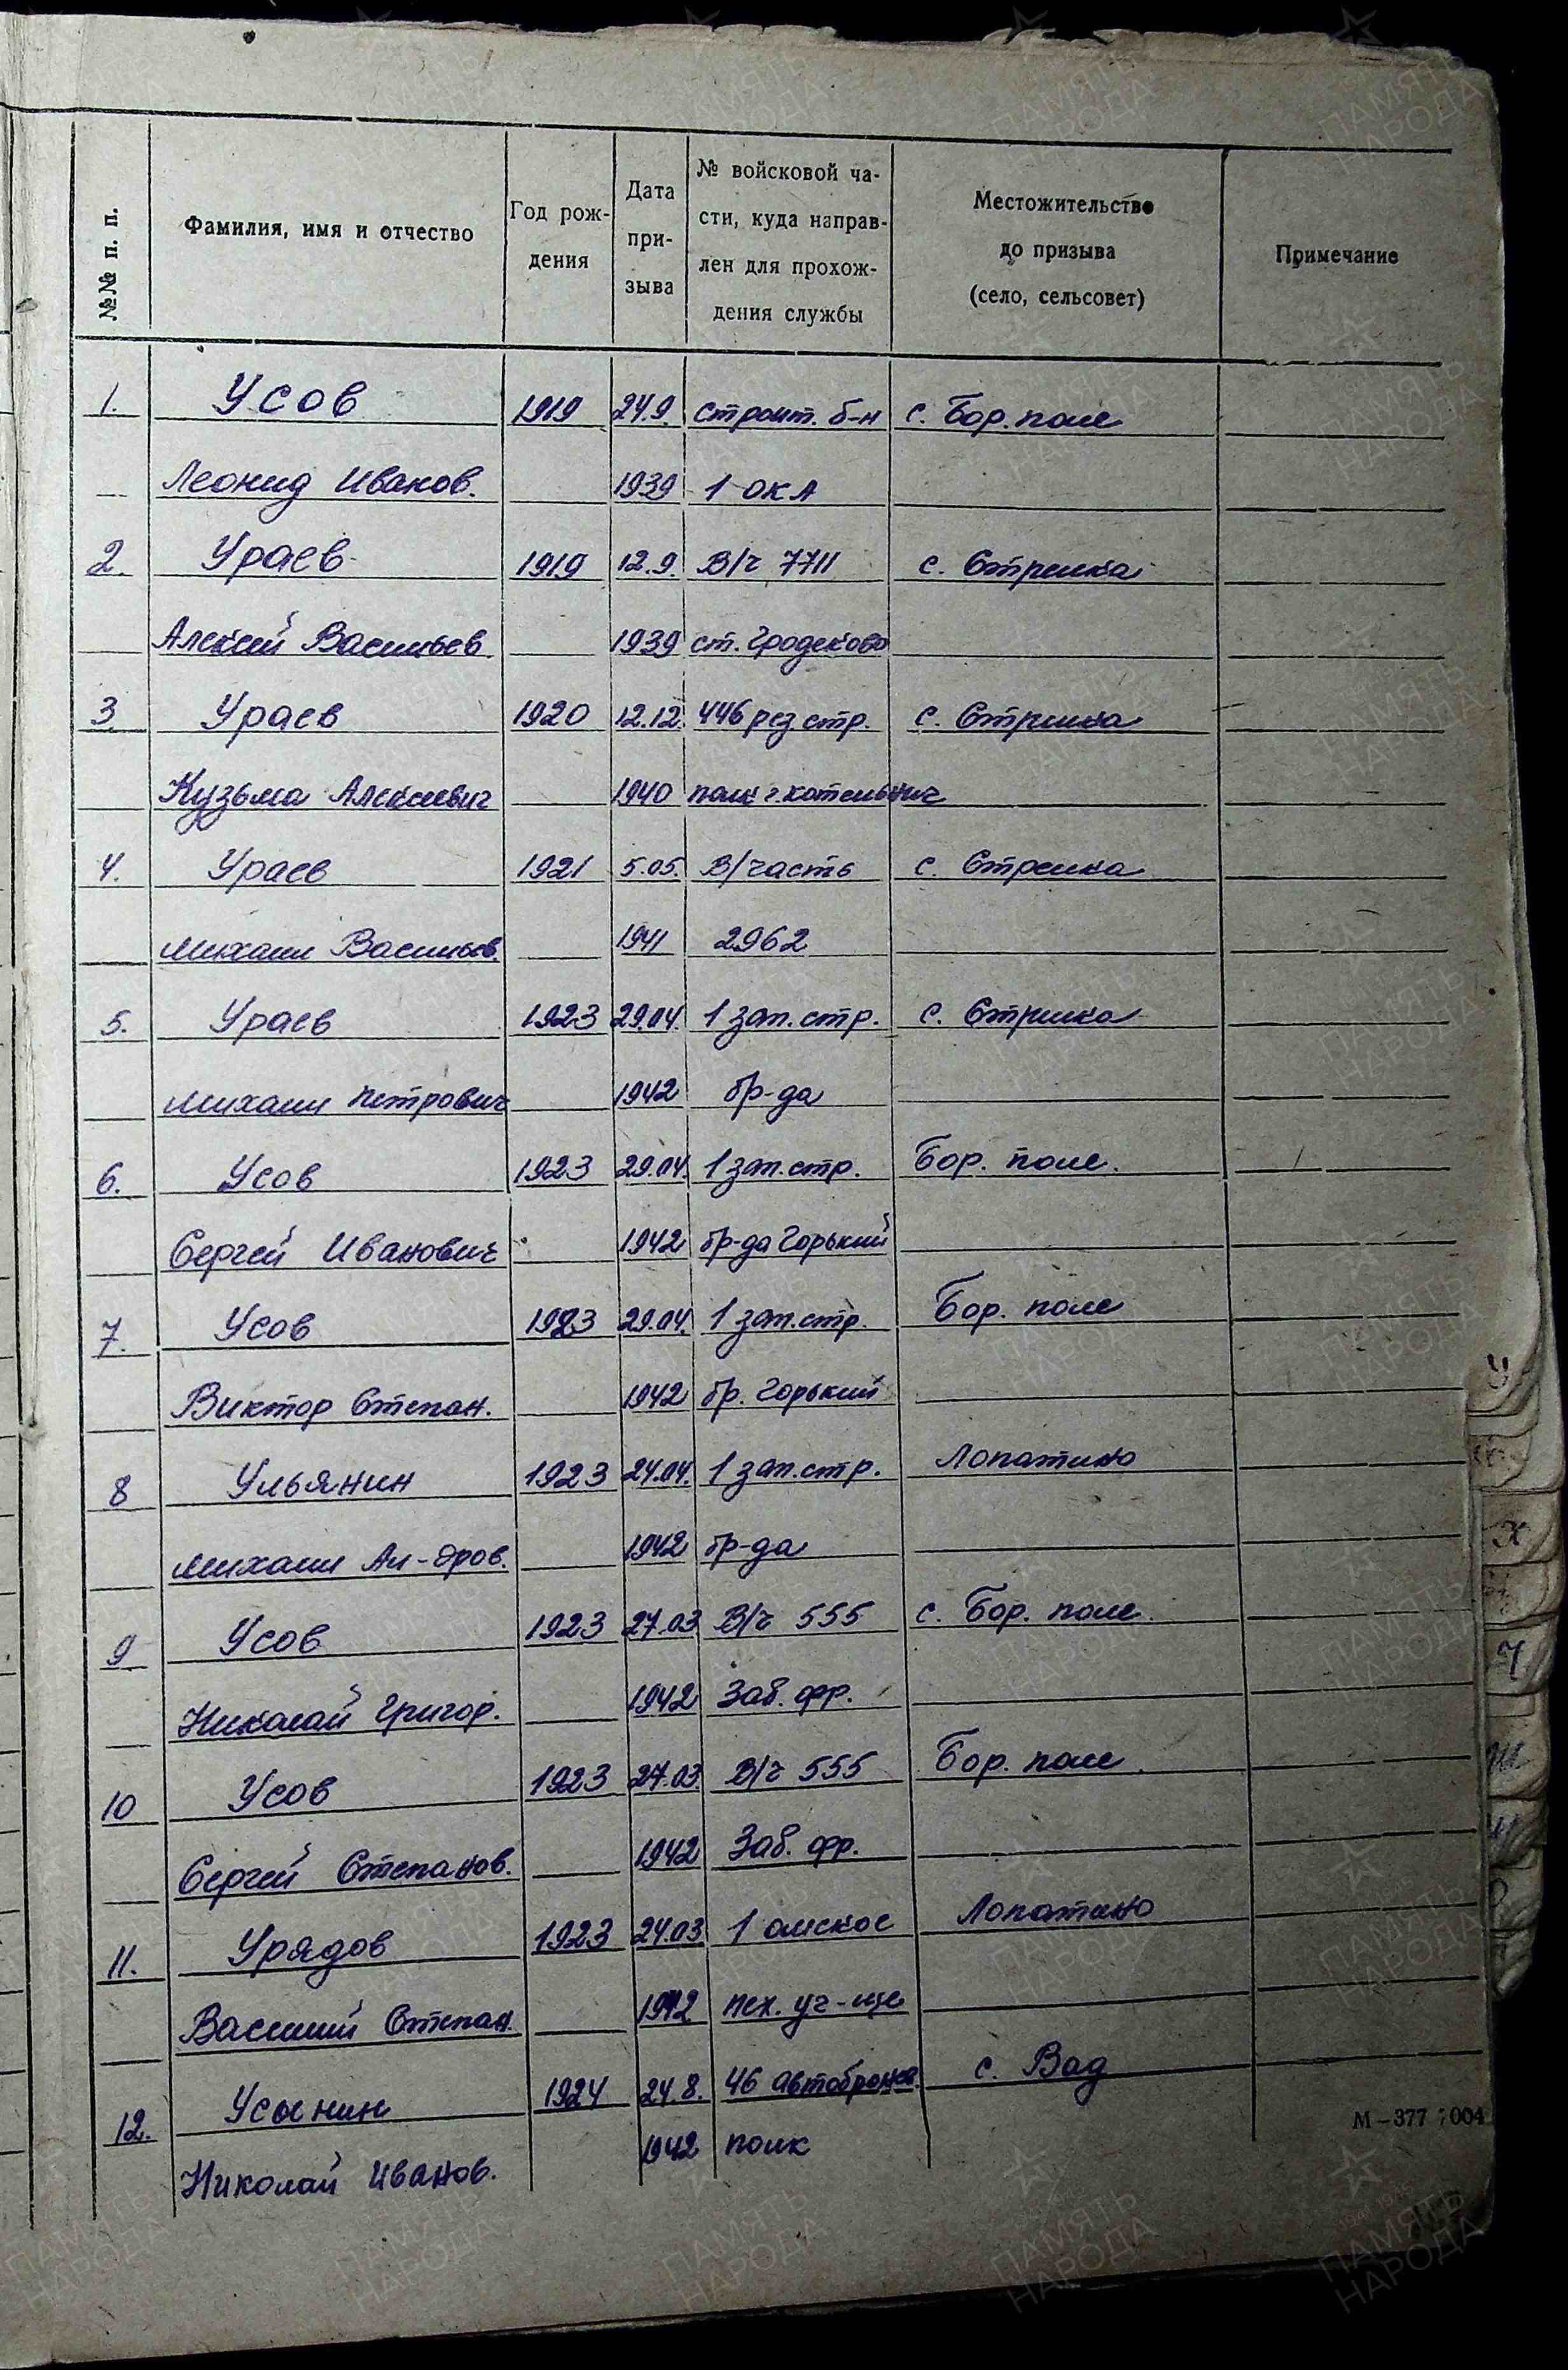 №№ п. п.
Фамилия, имя и отчество
Год рож-
дения
Дата
при-
зыва
№ войсковой ча-
сти, куда направ-
лен для прохож-
дения службы
Местожительство
до призыва
(село, сельсовет)
Примечание
1. Усов 1919 24.9. строит. б-н с. Бор. поле
Леонид Иванов. 1939 1 ОКА
2. Ураев 1919 12.9. В/ч 7711 с. Стрелка
Алексей Васильев 1939 ст. Гродеково
3 Ураев 1920 12.12. 446 рез. стр. с. Стрелка
Кузьма Алексеевич 1940 полк г. Котельнич
4. Ураев 1921 5.05. В/часть с. Стрелка
Михаил Васильев. 1941 2962
5. Ураев 1923 29.04. 1 зап. стр. с. Стрелка
Михаил Петрович 1942 бр-да
6. Усов 1923 29.04. 1 зап. стр. Бор. поле.
Сергей Иванович 1942 бр-да Горький
7. Усов 1923 29.04. 1 зап. стр. Бор. поле
Виктор Степан. 1942 бр. Горький
8 Ульянин 1923 24.04. 1 зап. стр. Лопатино
Михаил Ал-дров. 1942 бр-да
9 Усов 1923 27.03 В/ч 555 с. Бор. поле.
Николай Григор. 1942 Заб. фр.
10 Усов 1923 27.03. В/ч 555 Бор. поле.
Сергей Степанов. 1942 Заб. фр.
11. Урядов 1923 24.03 1 омское Лопатино
Василий Степан. 1942 пех. уч-ще
12. Усынин 1924 24.8. 46 автобронев. с. Вад
Николай Иванов. 1942 полк
У
Х
Ч
ПАМЯТЬ
НАРОДА